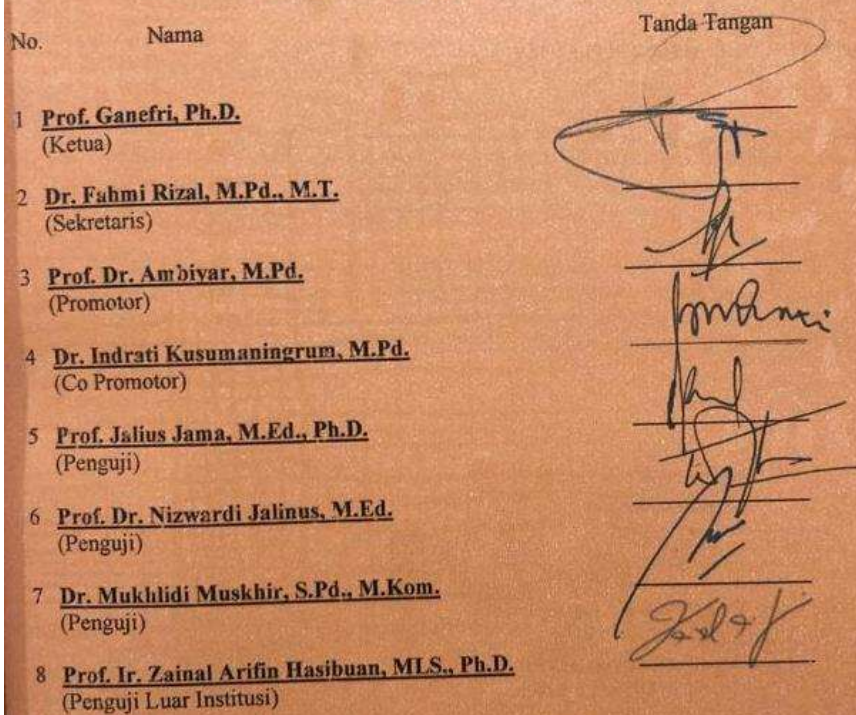 No. Nama Tanda Tangan
1 Prof. Ganefri, Ph.D.
(Ketua)
2 Dr. Fahmi Rizal, M.Pd., M.T.
(Sekretaris)
3 Prof. Dr. Ambiyar, M.Pd.
(Promotor)
4 Dr. Indrati Kusumaningrum, M.Pd.
(Co Promotor)
5 Prof. Jalius Jama, M.Ed., Ph.D.
(Penguji)
6 Prof. Dr. Nizwardi Jalinus, M.Ed.
(Penguji)
7 Dr. Mukhlidi Muskhir, S.Pd., M.Kom.
(Penguji)
8 Prof. Ir. Zainal Arifin Hasibuan, MLS., Ph.D.
(Penguji Luar Institusi)